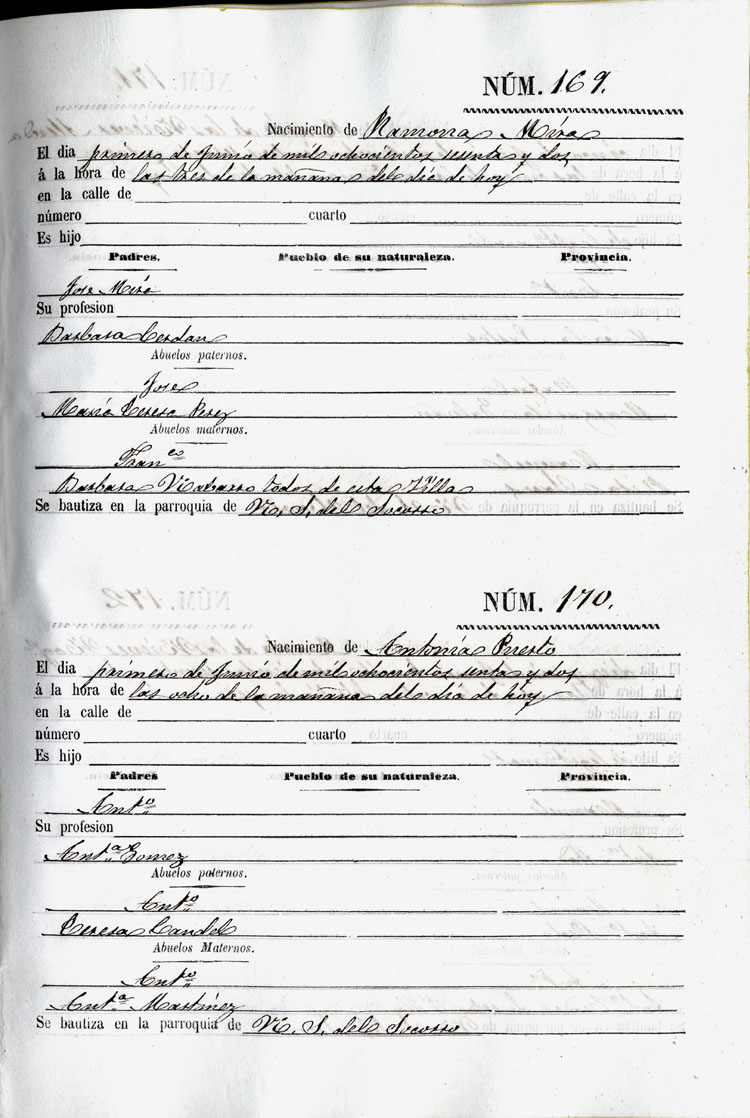 NÚM. 169.
Nacimiento de Ramona Mira
El dia primero de Junio de mil ochocientos sesenta y dos
á la hora de las tres de la mañana del dia de hoy
en la calle de
número cuarto
Es hijo
Padres. Pueblo de su naturaleza. Provincia.
Jose Mira
Su profesion
Barbara Cerdan
Abuelos paternos.
Jose
Maria Teresa Perez
Abuelos maternos.
Franco
Barbara Nabarro todos de esta Villa
Se bautiza en la parroquia de N. S. del Socorro
NÚM. 170.
Nacimiento de Antonia Puerto
El dia primero de Junio de mil ochocientos senta y dos
á la hora de las ocho de la mañana del dia de hoy
en la calle de
número cuarto
Es hijo
Padres Pueblo de su naturaleza. Provincia.
Anto
Su profesion
Anta Gomez
Abuelos paternos.
Anto
Teresa Candel
Abuelos Maternos.
Anto
Anta Martinez
Se bautiza en la parroquia de N. S. del Socorro